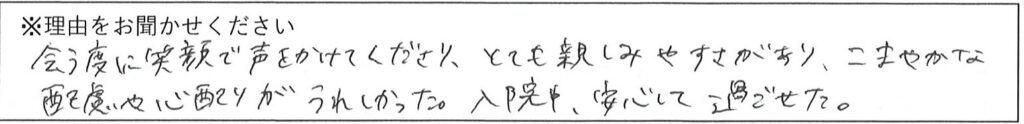 ※理由をお聞かせください
会う度に笑顔で声をかけてくださり、とても親しみやすさがあり、こまやかな
配慮や心配りがうれしかった。入院中、安心して過ごせた。